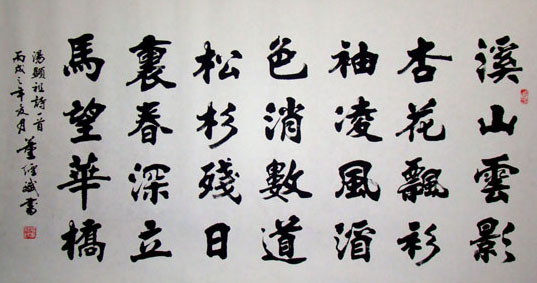 溪山雲影
杏花飄衫
袖凌風酒
色消數道
松杉殘日
裏春深立
馬望華橋
湯顯祖詩一首
丙戌之年月 董書